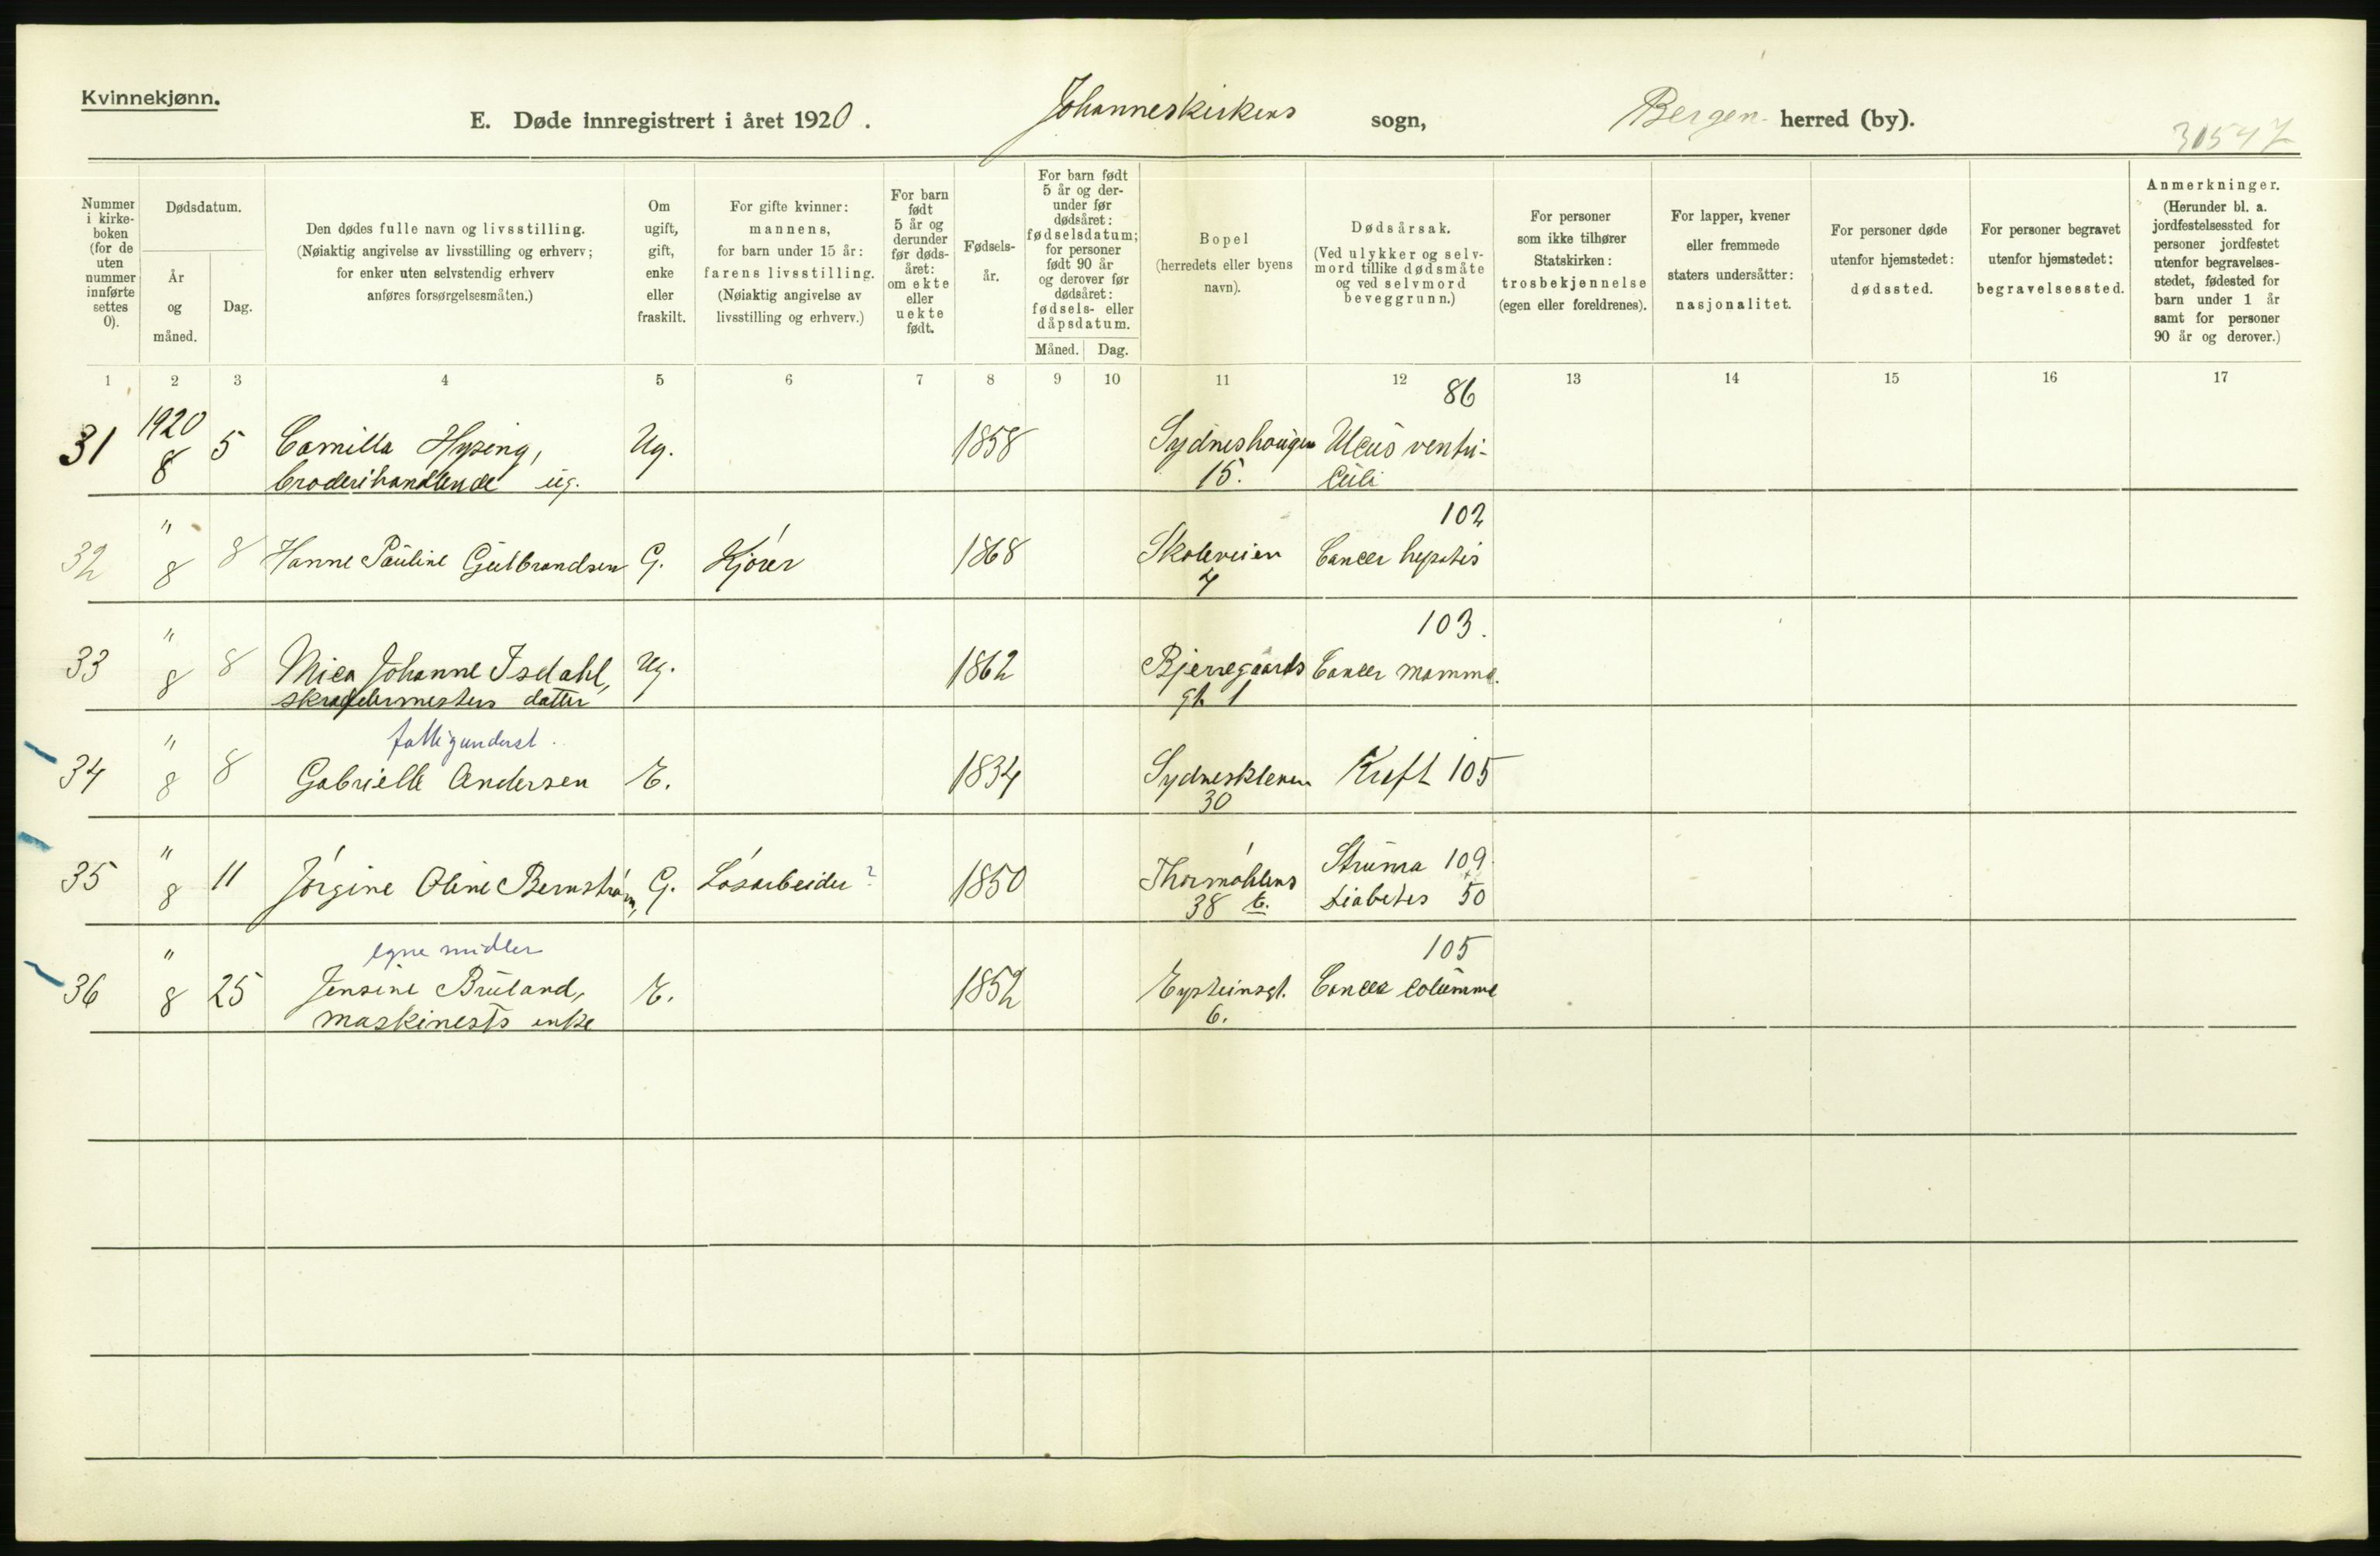 Kvinnekjønn.
E. Døde innregistrert i året 1920. Johanneskirkens sogn, Bergen herred (by).
31547
Nummer i kirke-boken (for de uten nummer innførte settes 0).
Dødsdatum.
År og måned.
Dag.
Den dødes fulle navn og livsstilling.
(Nøiaktig angivelse av livsstilling og erhverv;
for enker uten selvstendig erhverv
anføres forsørgelsesmåten.)
Om
ugift,
gift,
enke
eller
fraskilt.
For gifte kvinner:
mannens,
for barn under 15 år:
farens livsstilling.
(Nøiaktig angivelse av
livsstilling og erhverv.)
For barn
født
5 år og
derunder
før døds-
året:
om ekte
eller
uekte
født.
Fødsels-
år.
For barn født
5 år og der-
under før
dødsåret:
fødselsdatum;
for personer
født 90 år
og derover før
dødsåret:
fødsels- eller
dåpsdatum.
Måned. Dag.
Bopel
(herredets eller byens
navn).
Dødsårsak.
(Ved ulykker og selv-
mord tillike dødsmåte
og ved selvmord
beveggrunn.)
For personer
som ikke tilhører
Statskirken:
trosbekjennelse
(egen eller foreldrenes).
For lapper, kvener
eller fremmede
staters undersåtter:
nasjonalitet.
For personer døde
utenfor hjemstedet:
dødssted.
For personer begravet
utenfor hjemstedet:
begravelsessted.
Anmerkninger.
(Herunder bl. a.
jordfestelsessted for
personer jordfestet
utenfor begravelses-
stedet, fødested for
barn under 1 år
samt for personer
90 år og derover.)
1 2 3 4 5 6 7 8 9 10 11 12 13 14 15 16 17
86
31 1920 8 5 Camilla Hysing, Ug. 1858 Sydneshougen Ulcus ventri-
broderihandlende ug. 15. culi
102
32 " 8 8 Hanne Pauline Gulbrandsen G. Kjører 1868 Skoleveien Cancer hepatis
7
103.
33 " 8 8 Mica Johanne Isdahl, Ug. 1862 Bjerregaards Cancer mamma.
skreddermesters datter gt. 1
fattigunderst.
34 " 8 8 Gabrielle Andersen E. 1834 Sydneskleven Kreft 105
30
Struma 109.
35 " 8 11 Jørgine Oline Bernstrøm, G. Løsarbeider ? 1850 Thormøhlens
38 b. diabetes 50
egne midler 105
36 " 8 25 Jensine Bruland, E. 1852 Eysteinsgt. Cancer columna
maskinests enke 6.